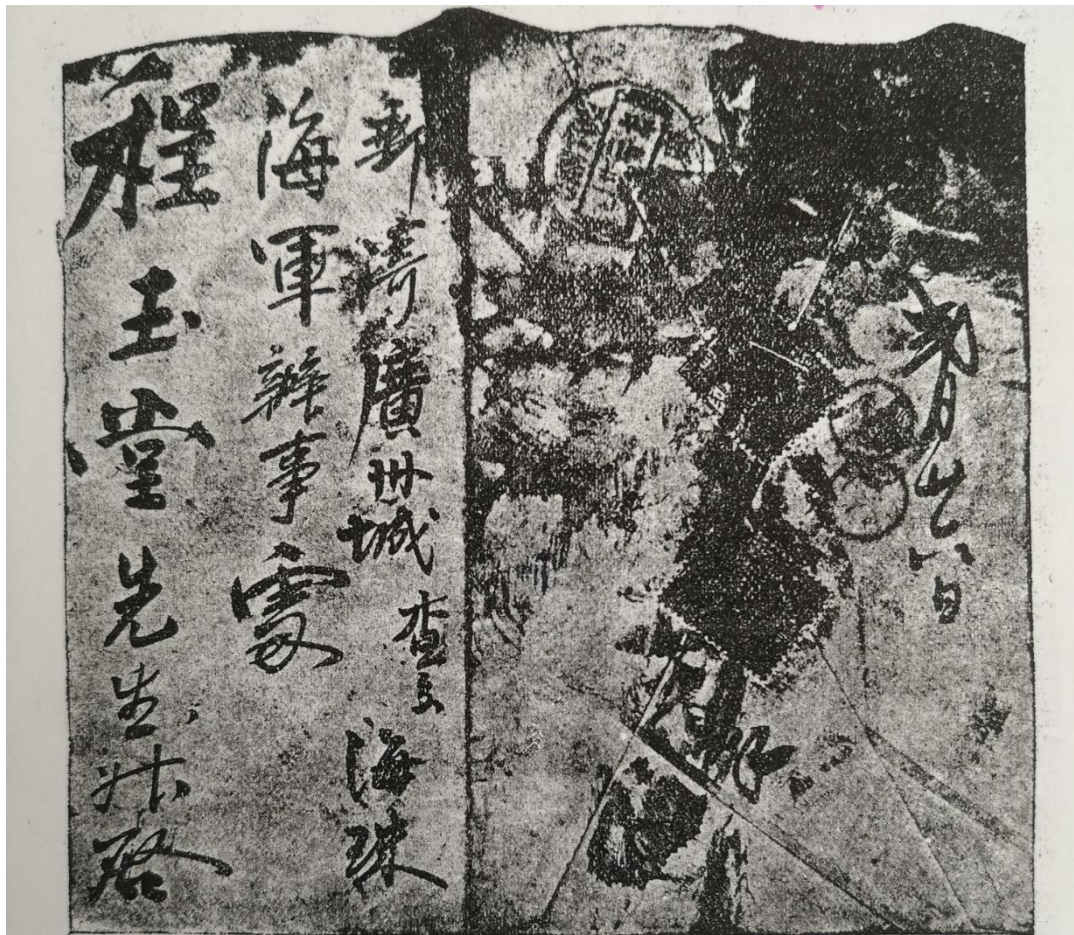 月廿八日
郵寄廣州城查交海珠
海軍辦事處
程玉堂先生升啟